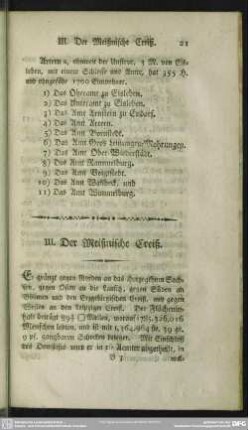 III. Der Meißnische Creiß. 21
Artern u, ohnweit der Unstrut, 3 M. von Eis-
leben, mit einem Schlosse und Amte, hat 255 H.
und ohngefähr 1700 Einwohner.
1) Das Oberamt zu Eisleben.
2) Das Unteramt zu Eisleben.
3) Das Amt Arnstein zu Endorf.
4) Das Amt Artern.
5) Das Amt Bornstedt.
6) Das Amt Groß Leinungen
7) Das Amt Ober-Wiederstädt.
8) Das Amt Rammelburg.
9) Das Amt Voigtstedt.
10) Das Amt Walbeck, und
11) Das Amt Wimmelburg.
III. Der Meißnische Creiß.
Er gränzt gegen Norden an das Herzogthum Sach-
sen, gegen Osten an die Lausitz, gegen Süden an
Böhmen und den Erzgebirgischen Creiß, und gegen
Westen an den Leipziger Creiß. Der Flächenin-
halt beträgt Meilen, worauf
Menschen leben, und ist mit
9 pf. gangbaren Schocken belegt. Mit Einschluß
des wird er in Aemter abgetheilt,
B 3